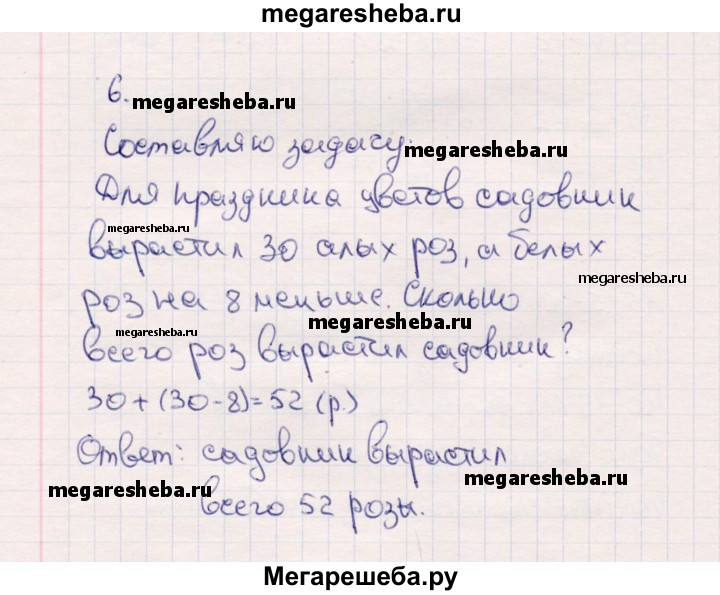 megaresheba.ru
6.
megaresheba.ru
Составляю задачу.
megaresheba.ru
Для праздника цветов садовник
megaresheba.ru
вырастил 30 алых роз, а белых
megaresheba.ru
роз на 8 меньше. Сколько
megaresheba.ru
megaresheba.ru
всего роз вырастил садовник?
30+(30-8)=52 (р.)
Ответ: садовник вырастил
megaresheba.ru
megaresheba.ru
всего 52 розы.
Мегарешеба.ру